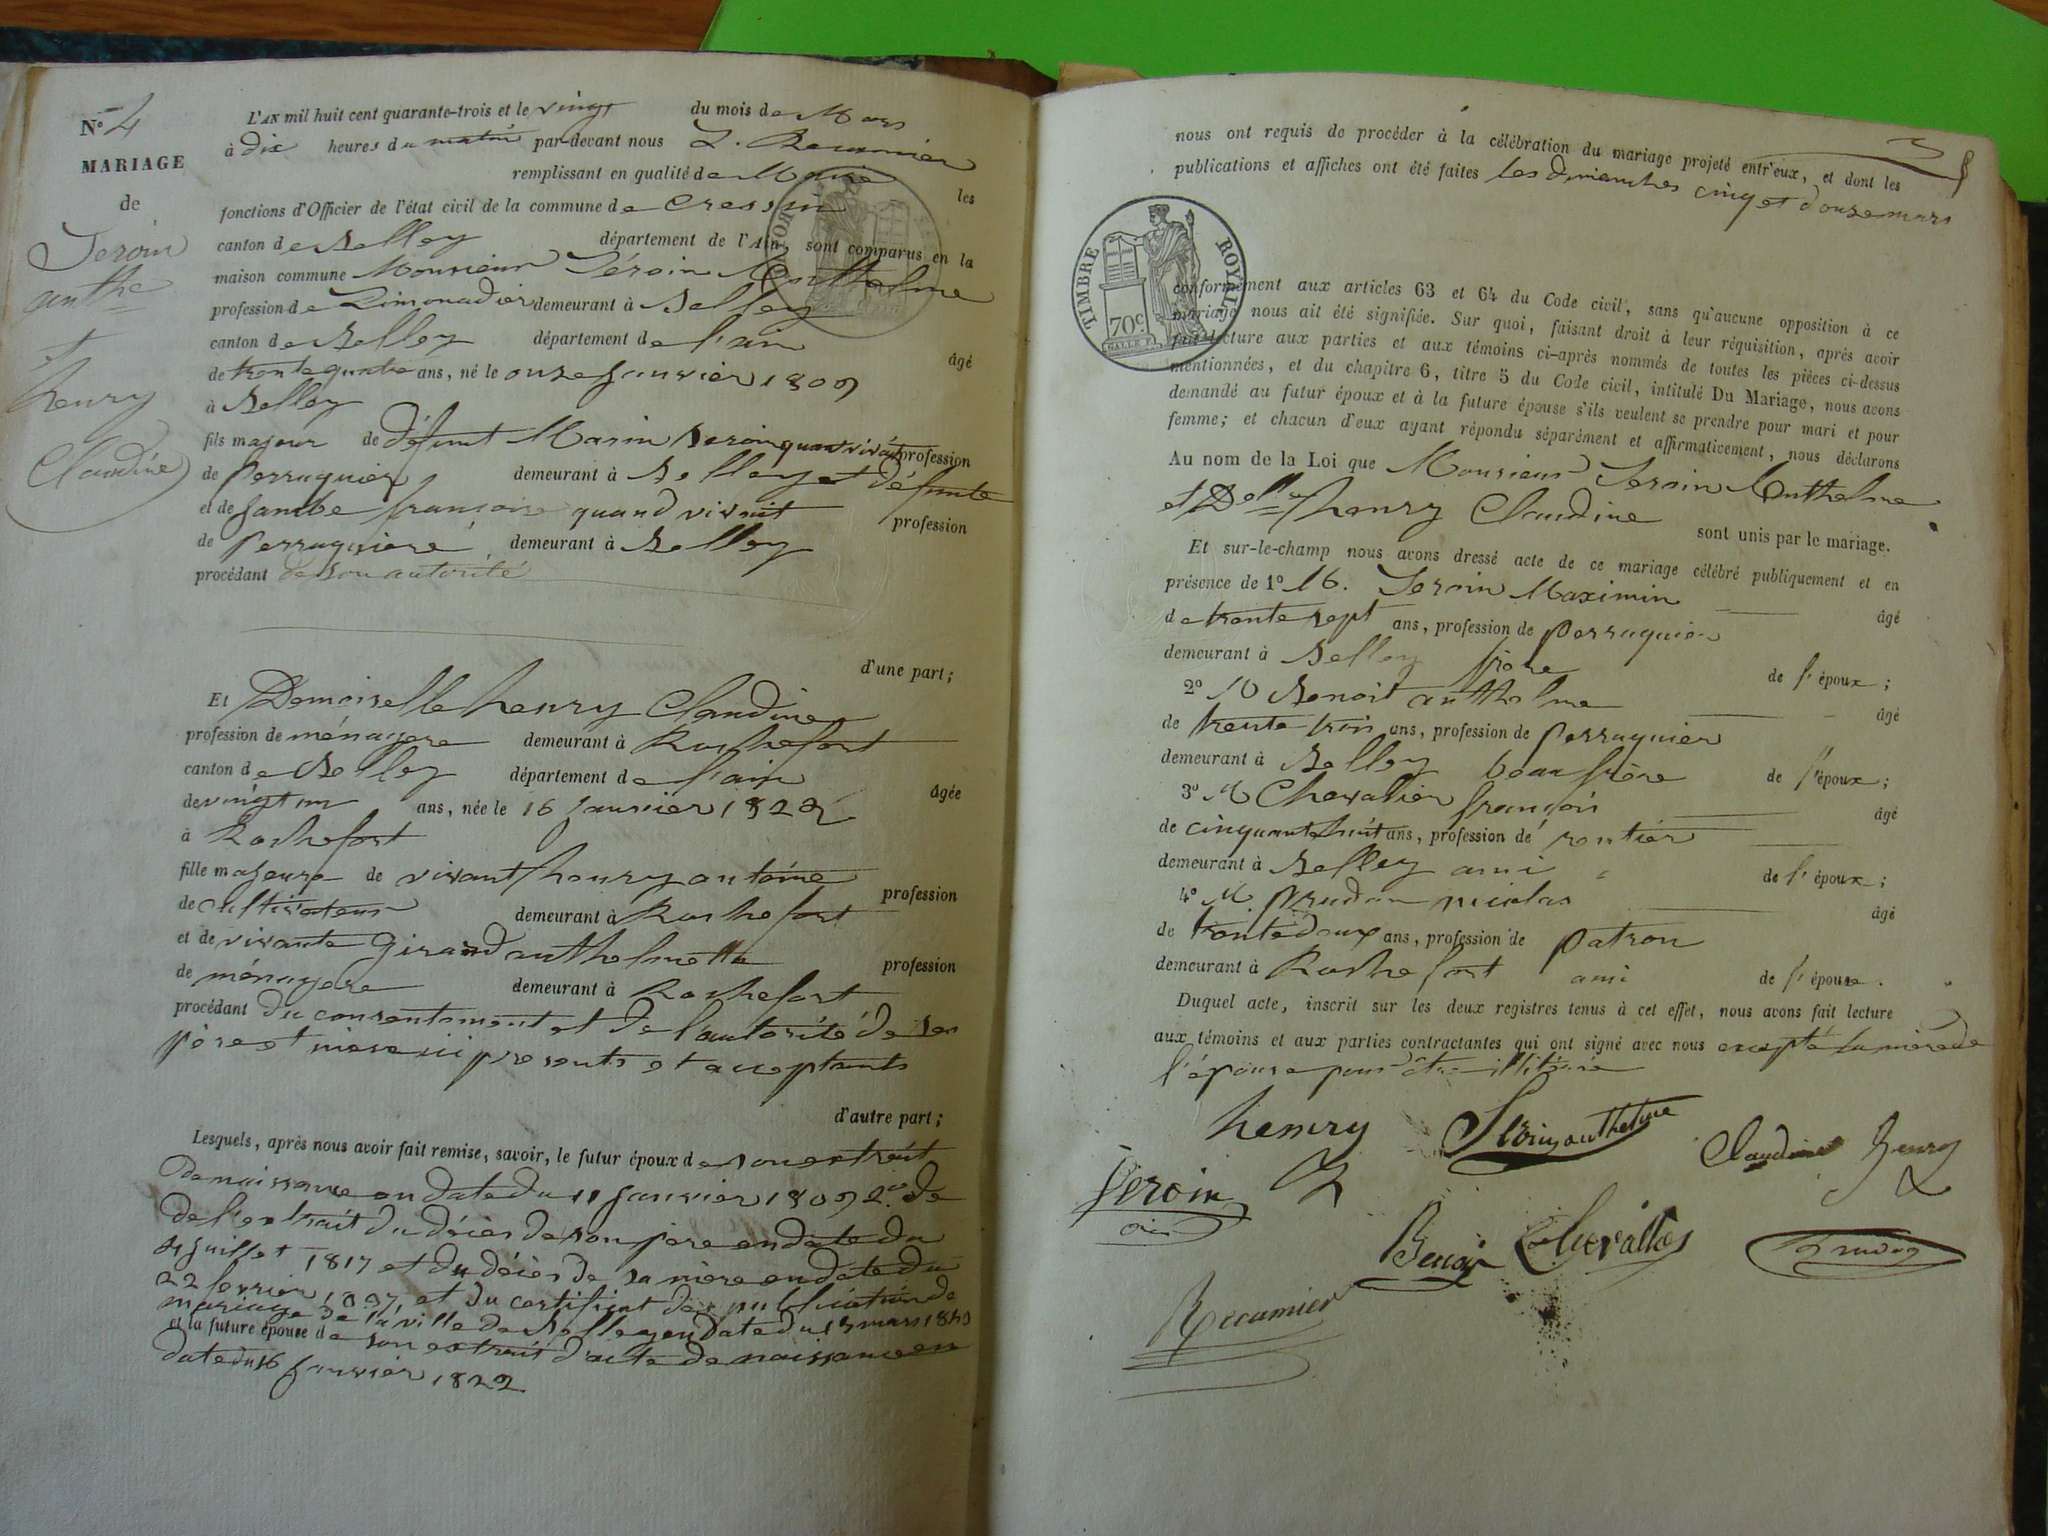 N° 4
MARIAGE
de
Seroin
anthe
et
henry
Claudine
L'AN mil huit cent quarante-trois et le vingt du mois de Mars
à dix heures du matin par-devant nous Recamier
remplissant en qualité de Maire les
fonctions d'Officier de l'état civil de la commune de Cressin
canton de Belley département de l'Ain, sont comparus en la
maison commune Monsieur Séroin Anthelme
profession de Limonadier demeurant à Belley
canton de Belley département de l'ain âgé
de trente quatre ans, né le onze Janvier 1809
à Belley
fils majeur de défunt Marin Seroin quand vivait profession
de perruquier demeurant à Belley et défunte
et de Jambe françoise quand vivait profession
de perruquiere demeurant à Belley
procédant de son autorité
d'une part;
Et Demoiselle henry Claudine
profession de ménagere demeurant à Rochefort
canton de Belley département de l'ain âgée
de vingt un ans, née le 16 Janvier 1822
à Rochefort
fille majeure de vivant henry antoine profession
de cultivateur demeurant à Rochefort
et de vivante Girard anthelmette profession
de ménagere demeurant à Rochefort
procédant du consentement et de l'autorité de ses
père et mere ici presents et acceptants
d'autre part;
Lesquels, après nous avoir fait remise, savoir, le futur époux de son extrait
de naissance en date du 11 Janvier 1809 2° de
de l'extrait du décès de son père en date du
4 Juillet 1817 et du décès de sa mère en date du
22 fevrier 1837, et du certificat des publications de
mariage de la ville de Belley en date du 13 mars 1843
et la future épouse de son extrait d'acte de naissance en
date du 16 Janvier 1822
nous ont requis de procéder à la célébration du mariage projeté entr'eux, et dont les
publications et affiches ont été faites les dimanches cinq et douze mars
TIMBRE ROYAL
70c
conformément aux articles 63 et 64 du Code civil, sans qu'aucune opposition à ce
mariage nous ait été signifiée. Sur quoi, faisant droit à leur réquisition, après avoir
fait lecture aux parties et aux témoins ci-après nommés de toutes les pièces ci-dessus
mentionnées, et du chapitre 6, titre 5 du Code civil, intitulé Du Mariage, nous avons
demandé au futur époux et à la future épouse s'ils veulent se prendre pour mari et pour
femme; et chacun d'eux ayant répondu séparément et affirmativement, nous déclarons
Au nom de la Loi que Monsieur Seroin Anthelme
et Delle henry Claudine sont unis par le mariage.
Et sur-le-champ nous avons dressé acte de ce mariage célébré publiquement et en
présence de 1° M. Seroin Maximin âgé
de trente sept ans, profession de perruquier
demeurant à Belley frère de l'époux;
2° M Benoit anthelme âgé
de trente trois ans, profession de perruquier
demeurant à Belley beau frère de l'époux;
3° M Chevalier françois âgé
de cinquante huit ans, profession de rentier
demeurant à Belley ami de l'époux;
4° M. prudon nicolas âgé
de trente deux ans, profession de patron
demeurant à Rochefort ami de l'épouse.
Duquel acte, inscrit sur les deux registres tenus à cet effet, nous avons fait lecture
aux témoins et aux parties contractantes qui ont signé avec nous excepté la mère de
l'épouse pour être illitérée
henry Seroin anthelme Claudine henry
Seroin
Benoit Chevallier prudon
Recamier